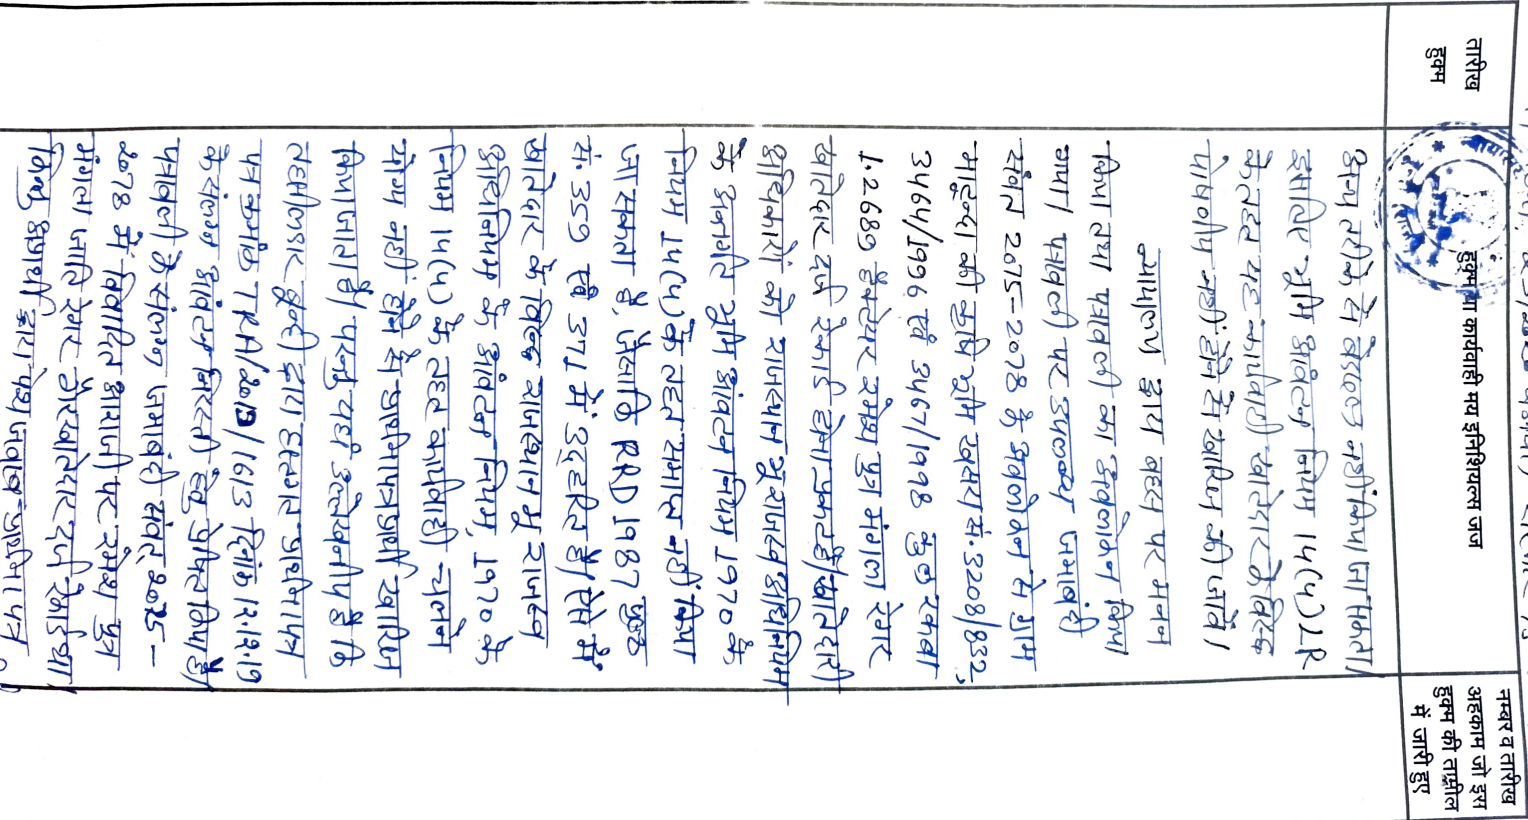 तारीख
हुक्म
हुक्म या कार्यवाही मय इनिशियल्स जज
नम्बर व तारीख
अहकाम जो इस
हुक्म की तामील
में जारी हुए
अन्य तरीके से बेदखल नहीं किया जा सकता।
इसलिए भूमि आवंटन नियम 14(4) LR
के तहत यह कार्यवाही खातेदार के विरुद्ध
पोषणीय नहीं होने से खारिज की जावे।
न्यायालय द्वारा बहस पर मनन
किया तथा पत्रावली का अवलोकन किया
गया। पत्रावली पर उपलब्ध जमाबंदी
संवत 2075-2078 के अवलोकन से ग्राम
माटून्दा की कृषि भूमि खसरा सं. 3208/832,
3464/1996 एवं 3467/1998 कुल रकबा
1.2689 हैक्टेयर रमेश पुत्र मंगला रेगर
खातेदार दर्ज रेकार्ड होना प्रकट है। खातेदारी
अधिकारों को राजस्थान भू राजस्व अधिनियम
के अन्तर्गत भूमि आवंटन नियम 1970 के
नियम 14(4) के तहत समाप्त नहीं किया
जा सकता है, जैसाकि RRD 1987 पृष्ठ
सं. 359 एवं 371 में उद्धरित है। ऐसे में
खातेदार के विरुद्ध राजस्थान भू राजस्व
अधिनियम के आवंटन नियम, 1970 के
नियम 14(4) के तहत कार्यवाही चलने
योग्य नहीं होने से प्रार्थना पत्र प्रार्थी खारिज
किया जाता है। परन्तु यहाँ उल्लेखनीय है कि
तहसीलदार बून्दी द्वारा हस्तगत प्रार्थना पत्र
पत्र क्रमांक TRA/2019/1613 दिनांक 12.12.19
के संलग्न आवंटन निरस्ती हेतु प्रेषित किया है।
पत्रावली के संलग्न जमाबंदी संवत् 2075-
2078 में विवादित आराजी पर रमेश पुत्र
मंगला जाति रेगर गैरखातेदार दर्ज रेकार्ड था।
किन्तु अप्रार्थी द्वारा पेश जवाब प्रार्थना पत्र